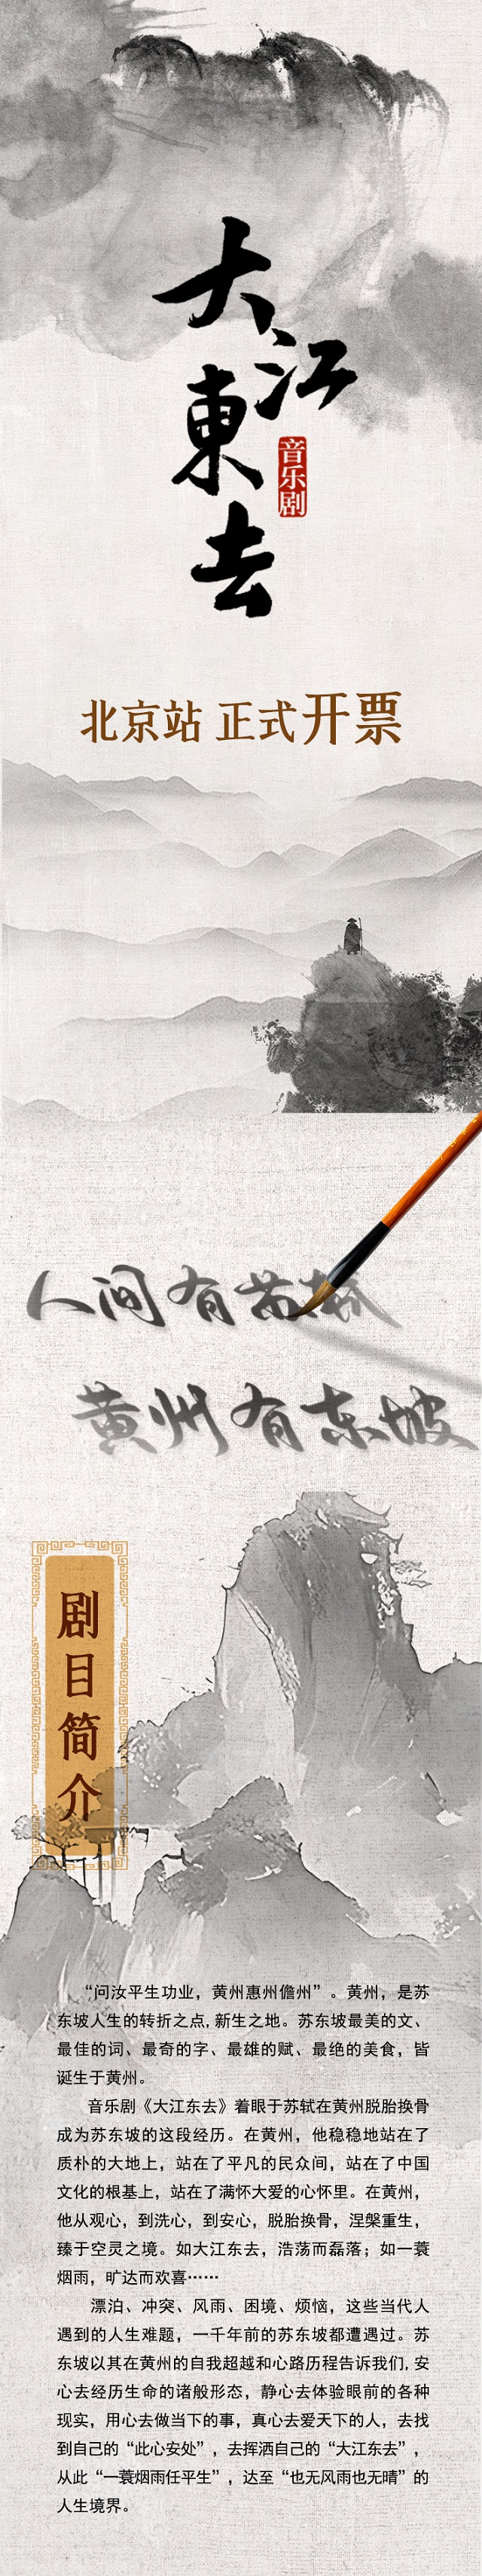 大江東去
音乐剧
北京站 正式开票
人间有苏轼
黄州有东坡
剧目简介
“问汝平生功业，黄州惠州儋州”。黄州，是苏
东坡人生的转折之点,新生之地。苏东坡最美的文、
最佳的词、最奇的字、最雄的赋、最绝的美食，皆
诞生于黄州。
音乐剧《大江东去》着眼于苏轼在黄州脱胎换骨
成为苏东坡的这段经历。在黄州，他稳稳地站在了
质朴的大地上，站在了平凡的民众间，站在了中国
文化的根基上，站在了满怀大爱的心怀里。在黄州，
他从观心，到洗心，到安心，脱胎换骨，涅槃重生，
臻于空灵之境。如大江东去，浩荡而磊落；如一蓑
烟雨，旷达而欢喜……
漂泊、冲突、风雨、困境、烦恼，这些当代人
遇到的人生难题，一千年前的苏东坡都遭遇过。苏
东坡以其在黄州的自我超越和心路历程告诉我们,安
心去经历生命的诸般形态，静心去体验眼前的各种
现实，用心去做当下的事，真心去爱天下的人，去找
到自己的“此心安处”，去挥洒自己的“大江东去”，
从此“一蓑烟雨任平生”，达至“也无风雨也无晴”的
人生境界。